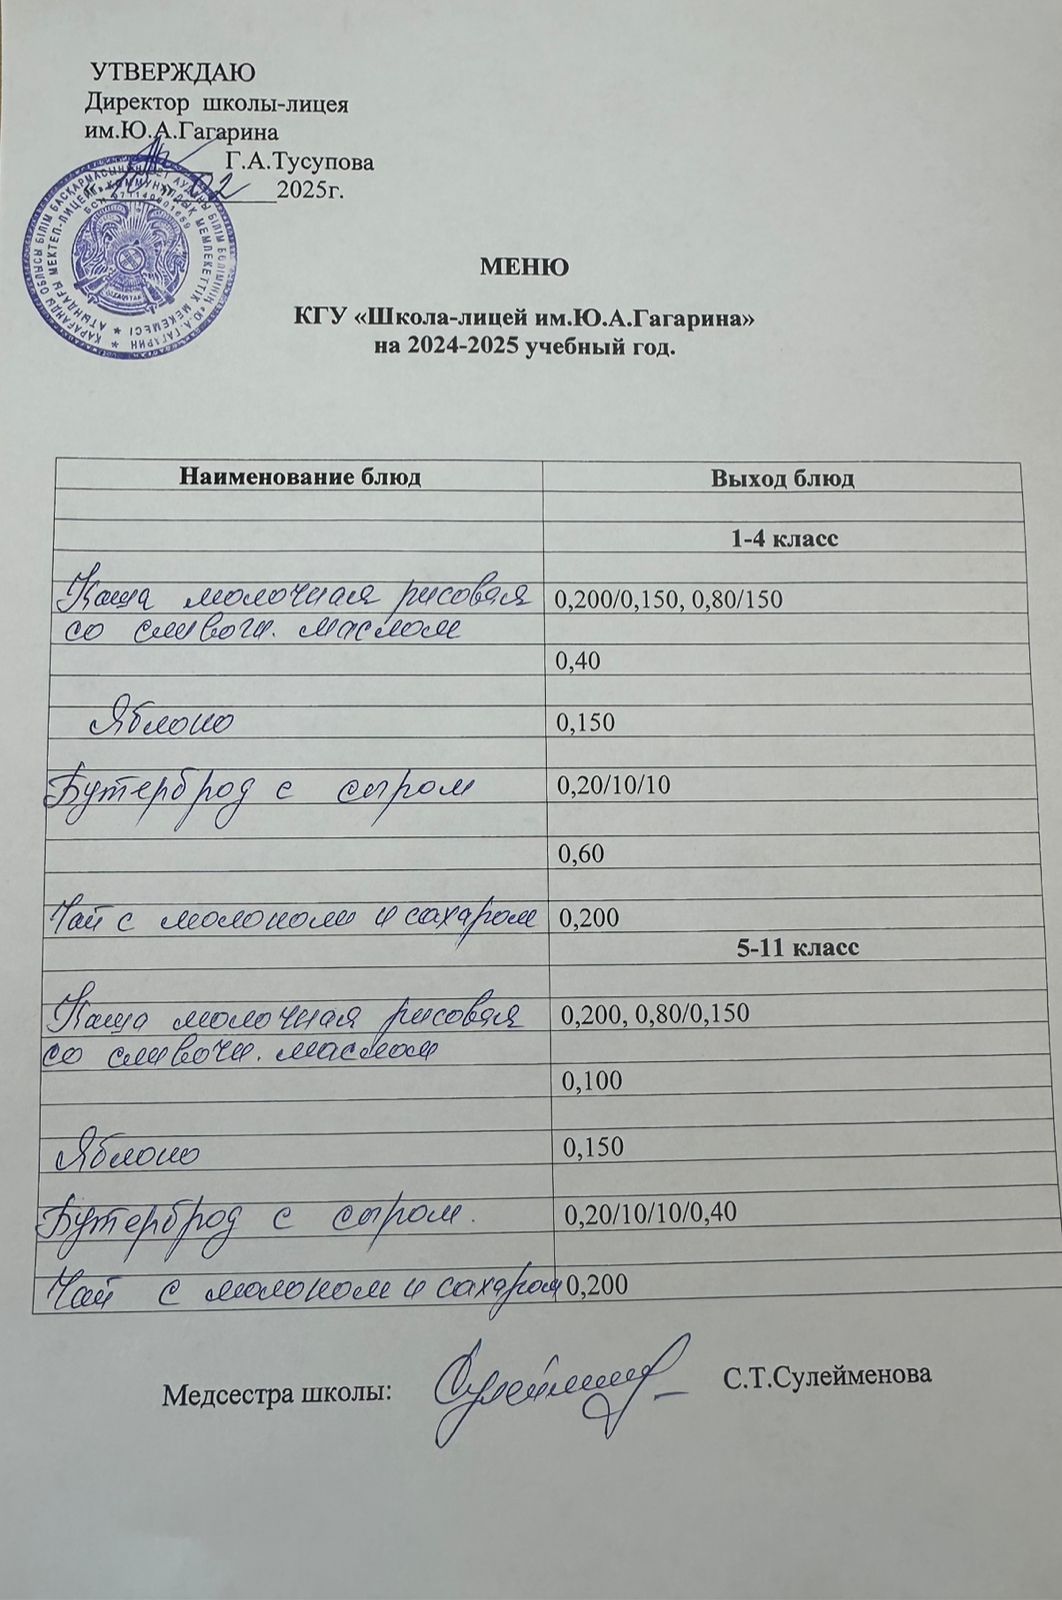 УТВЕРЖДАЮ
Директор школы-лицея
им.Ю.А.Гагарина
Г.А.Тусупова
02 2025г.
МЕНЮ
КГУ «Школа-лицей им.Ю.А.Гагарина»
на 2024-2025 учебный год.
Наименование блюд Выход блюд
1-4 класс
Каша молочная рисовая 0,200/0,150, 0,80/150
со сливочн. маслом
0,40
Яблоко 0,150
Бутерброд с сыром 0,20/10/10
0,60
Чай с молоком и сахаром 0,200
5-11 класс
Каша молочная рисовая 0,200, 0,80/0,150
со сливочн. маслом
0,100
Яблоко 0,150
Бутерброд с сыром. 0,20/10/10/0,40
Чай с молоком и сахаром 0,200
Медсестра школы: С.Т.Сулейменова